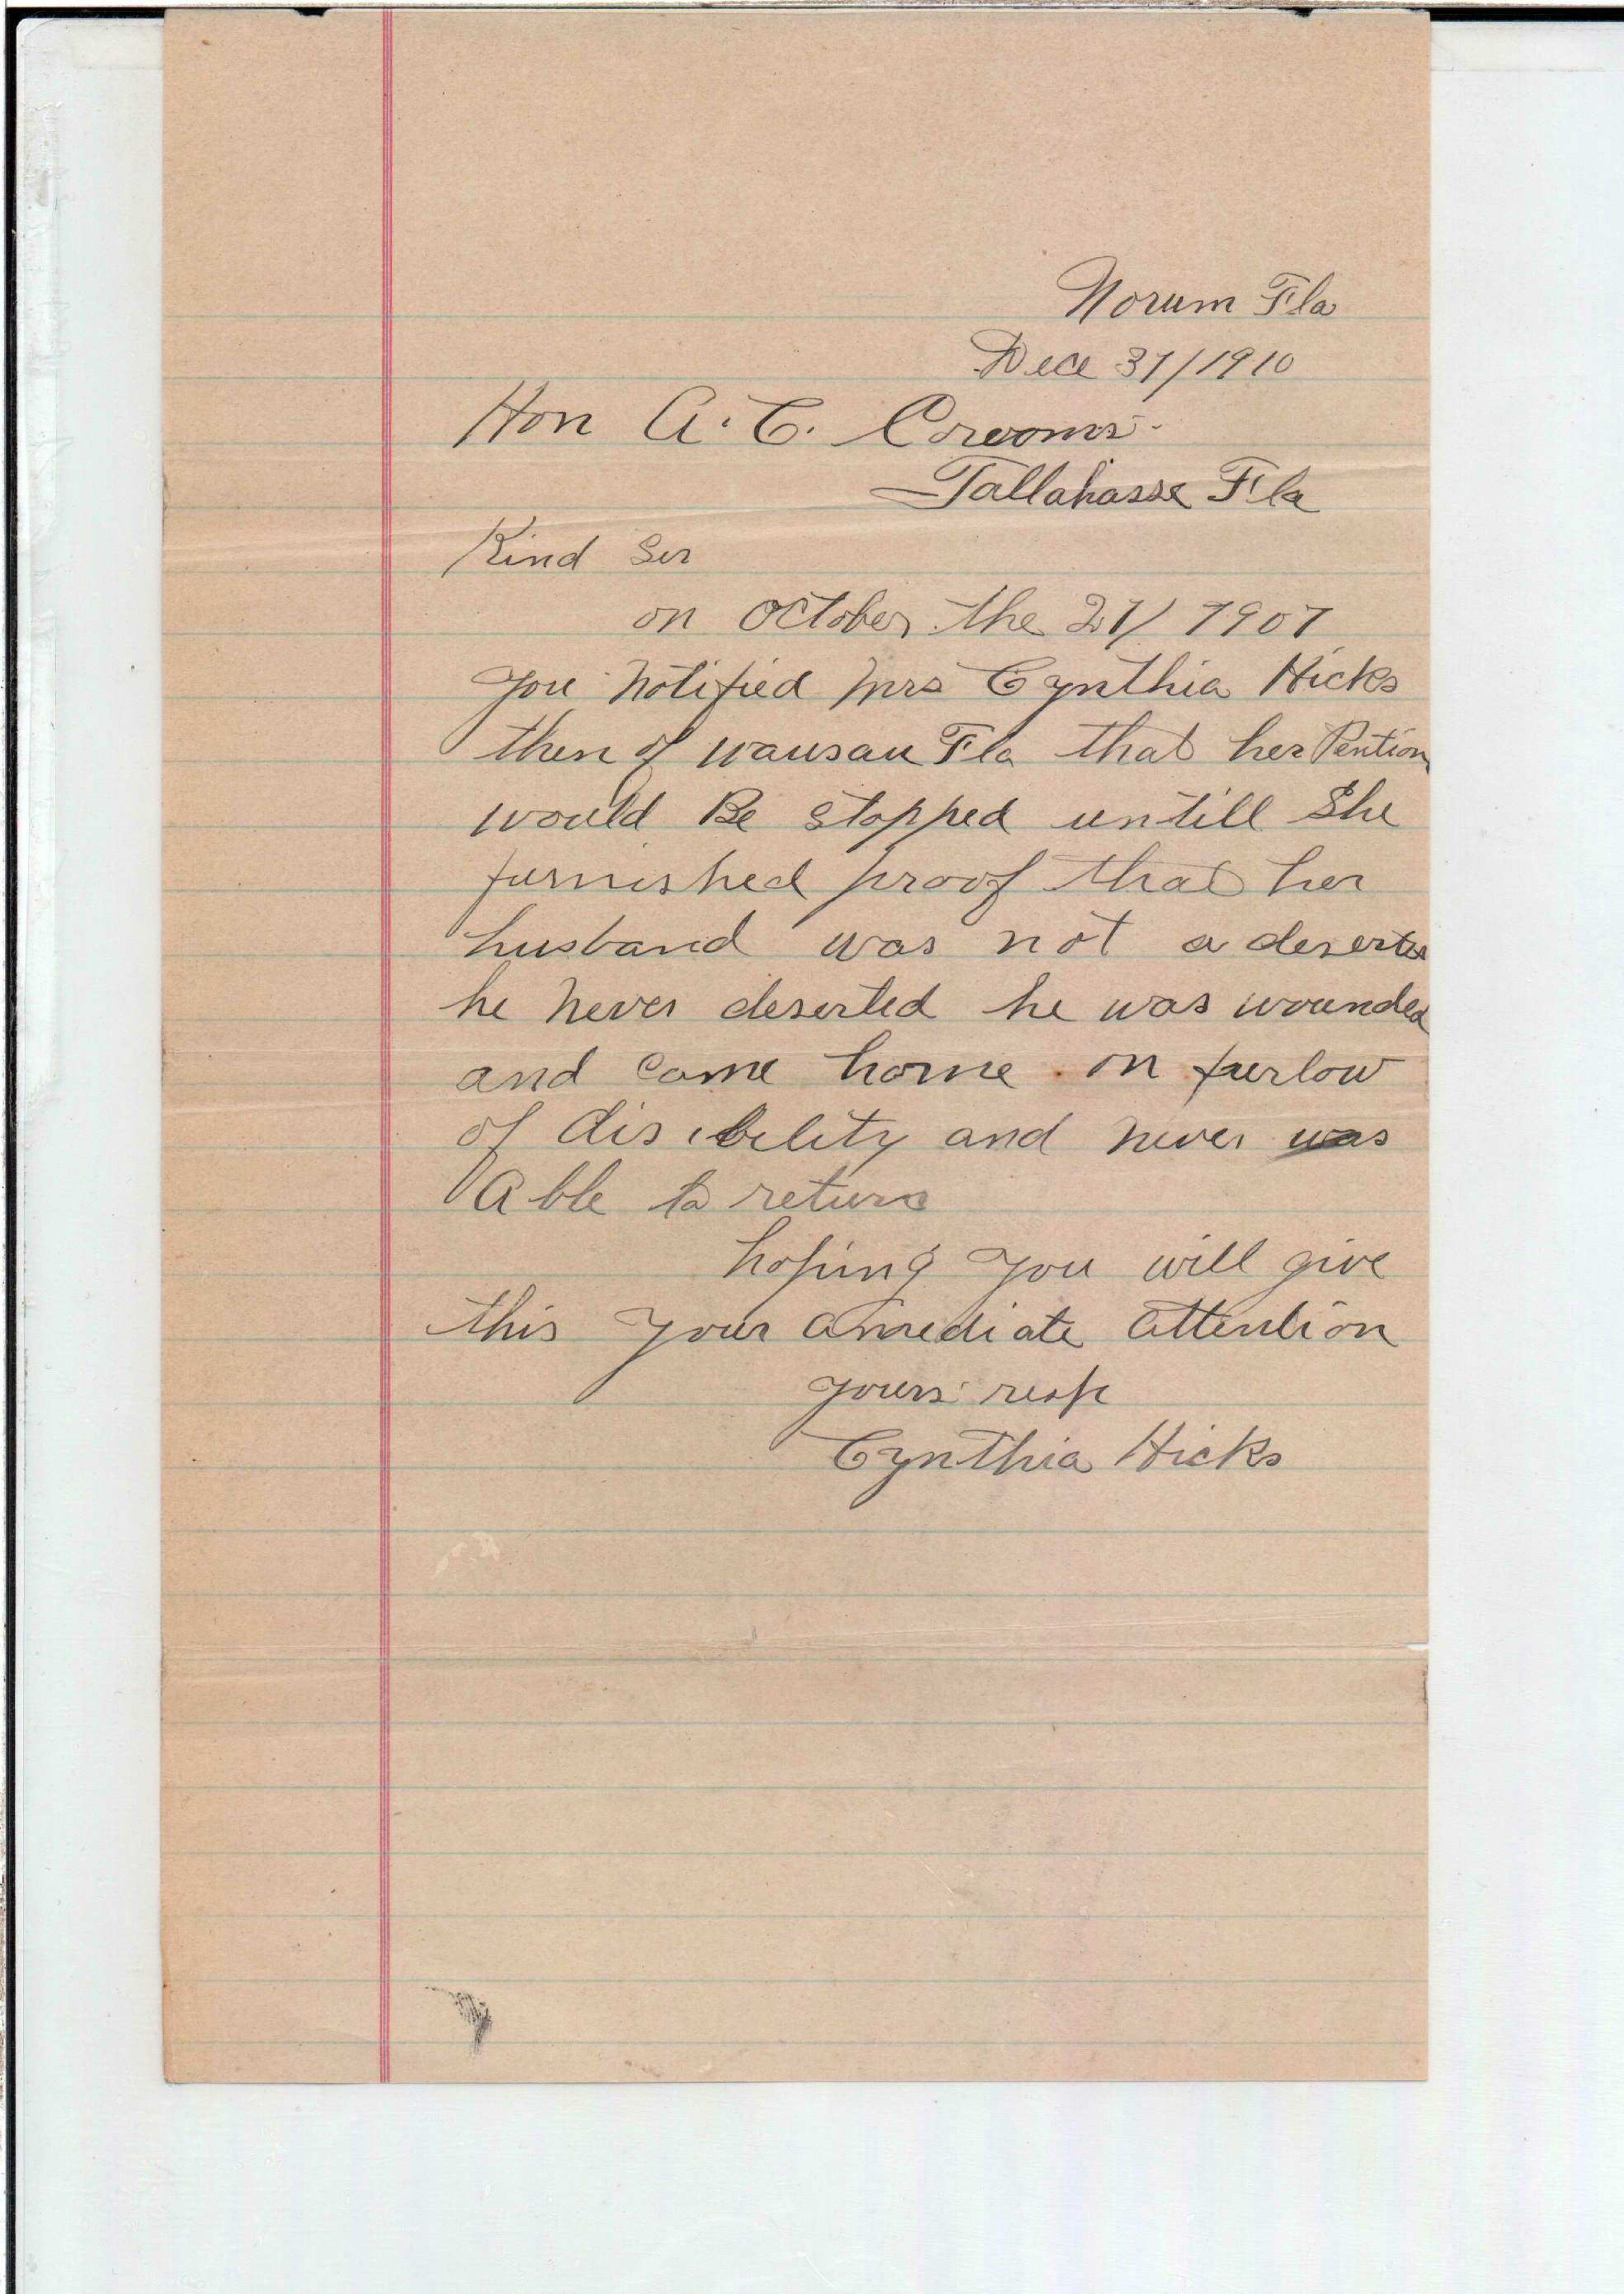 Norum Fla
Dece 31/1910
Hon A. C. Crooms
Tallahasse Fla
Kind Sir
on October the 21/ 1907
you notified mrs Cynthia Hicks
then of wausau Fla that her Pention
would Be stopped untill She
furnished proof that her
husband was not a deserter
he never deserted he was wounded
and came home on furlow
of disibelity and never was
Able to return
hoping you will give
this your amediate attention
yours resp
Cynthia Hicks